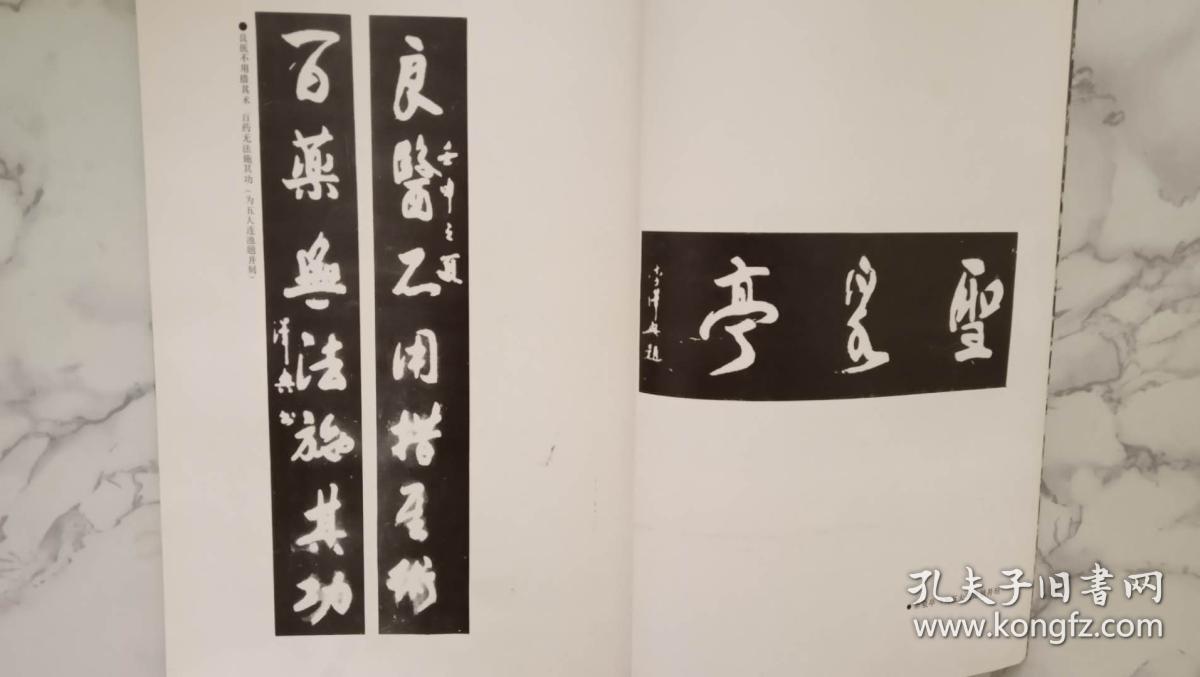 良醫不用措其術
壬申之夏
百藥無法施其功
●良医不用措其术 百药无法施其功（为五大连池题并刻）
聖 亭
孔夫子旧书网
www.kongfz.com